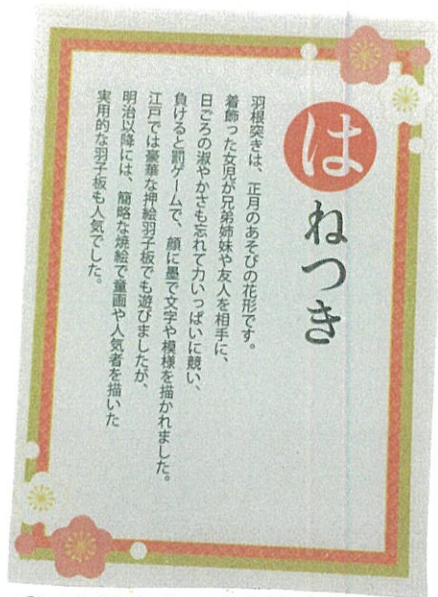 はねつき
羽根突きは、正月のあそびの花形です。
着飾った女児が兄弟姉妹や友人を相手に、
日ごろの淑やかさも忘れて力いっぱいに競い、
負けると罰ゲームで、顔に墨で文字や模様を描かれました。
江戸では豪華な押絵羽子板でも遊びましたが、
明治以降には、簡略な焼絵で童画や人気者を描いた
実用的な羽子板も人気でした。